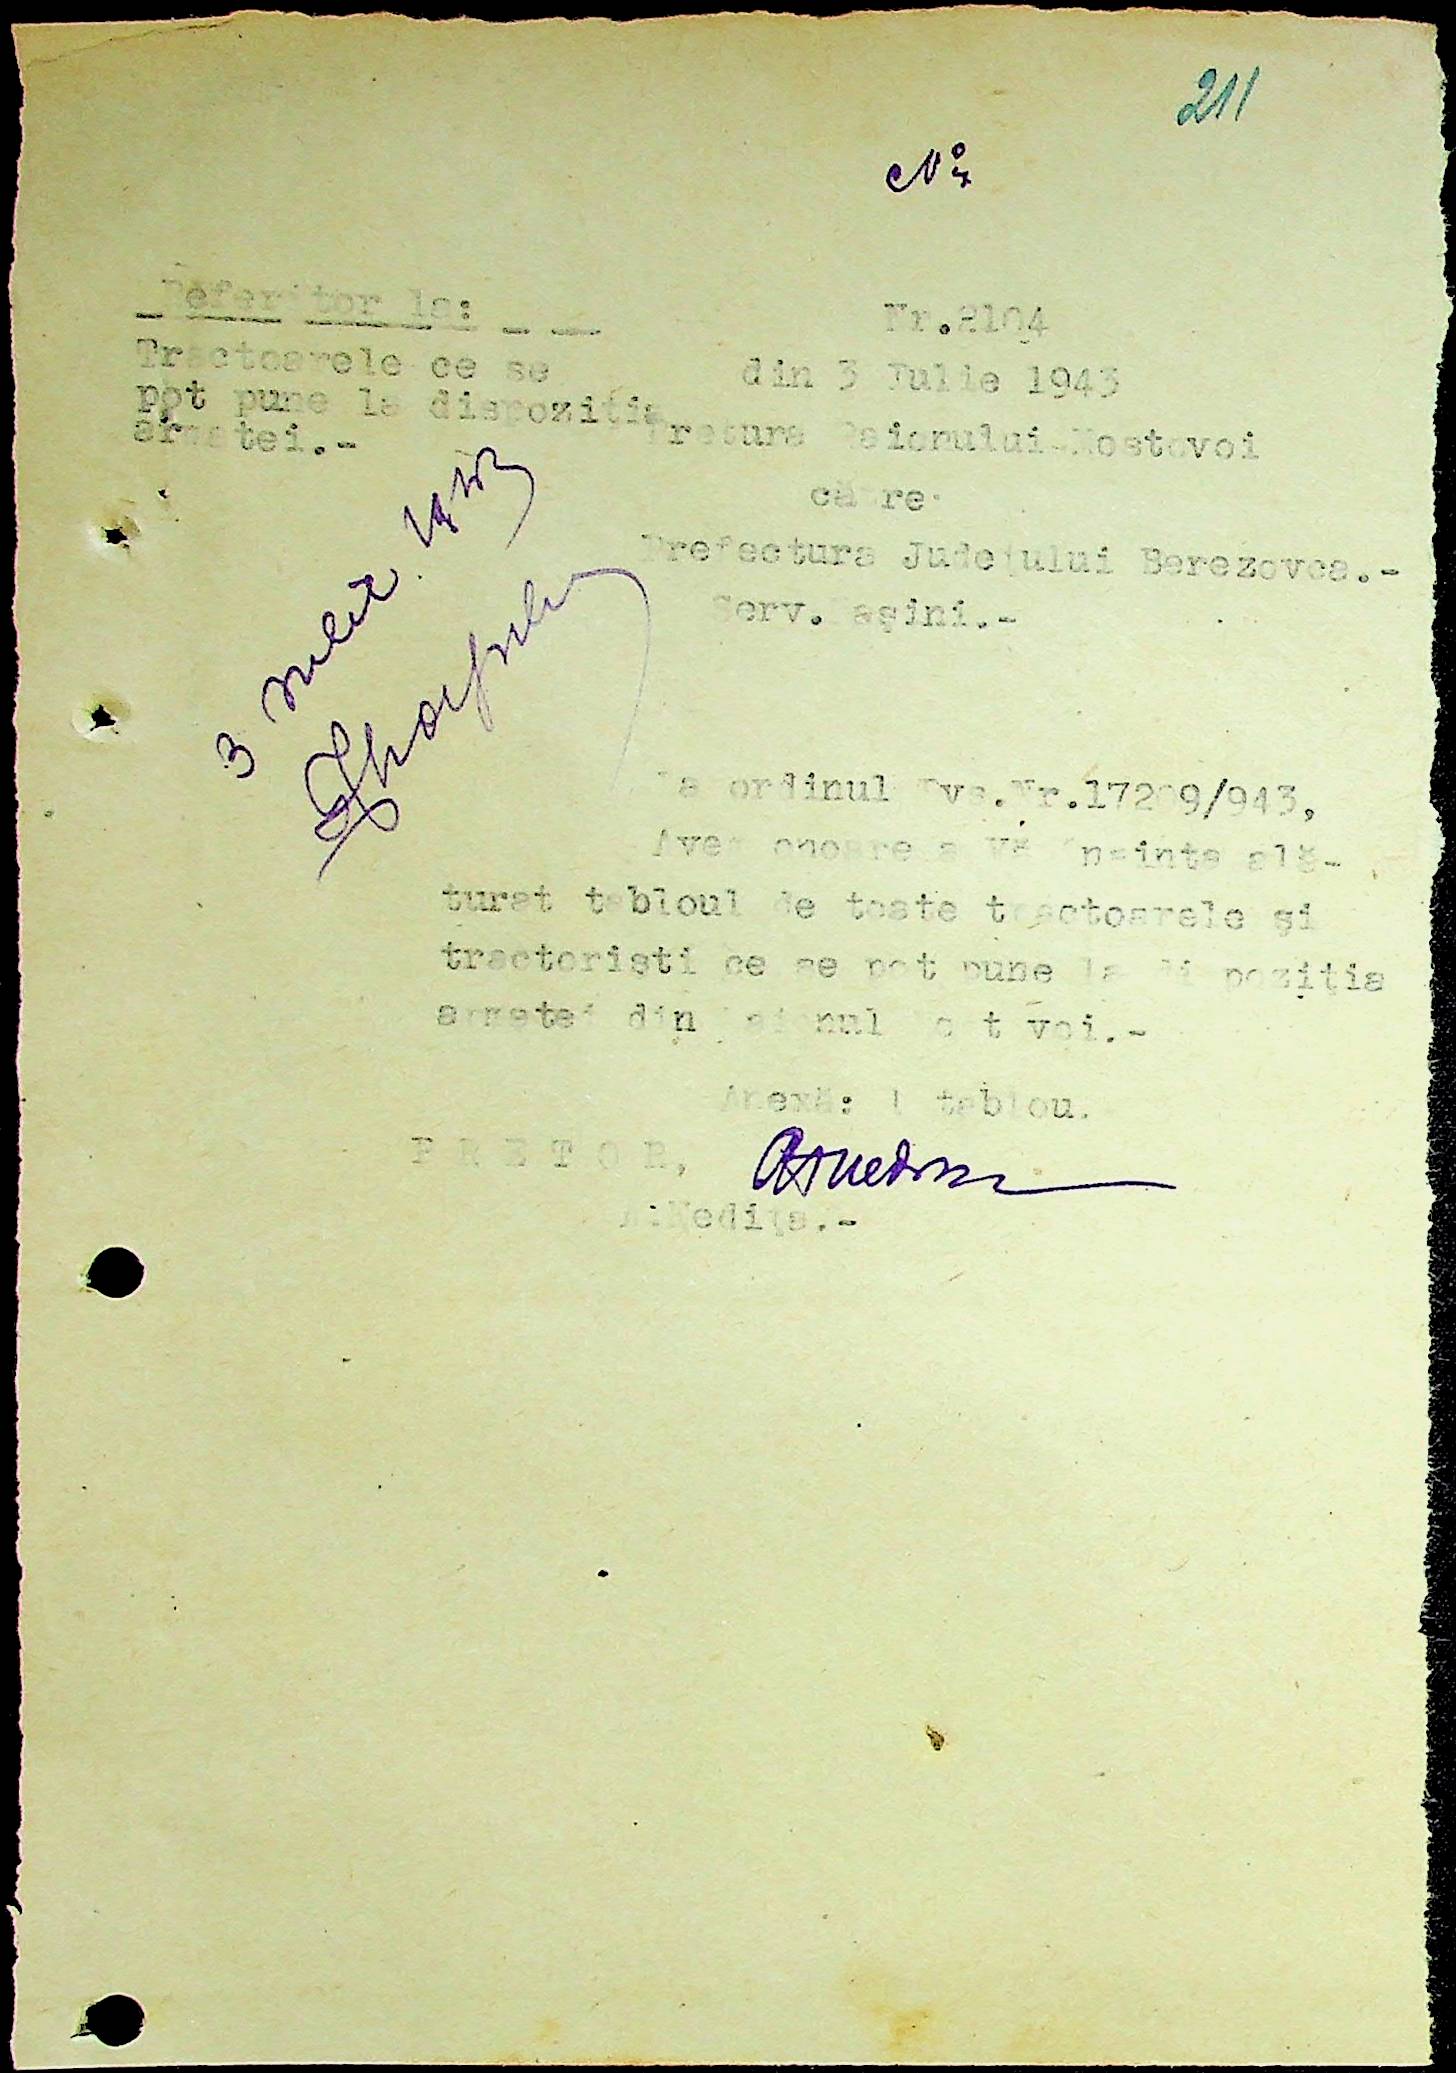 211
Nº
Referitor la:
Tractoarele ce se
pot pune la dispoziția
armatei.-
Nr.2104
din 3 Iulie 1943
Pretura Raionului-Mostovoi
către
Prefectura Județului Berezovca.-
Serv.Mașini.-
3 1943
La ordinul Dvs.Nr.17209/943,
Avem onoarea Vă înainta ală-
turat tabloul de toate tractoarele și
tractoristi ce se pot pune la dispoziția
armatei din Raionul Mostovoi.-
Anexă: 1 tablou.
PRETOR,
Nedița.-